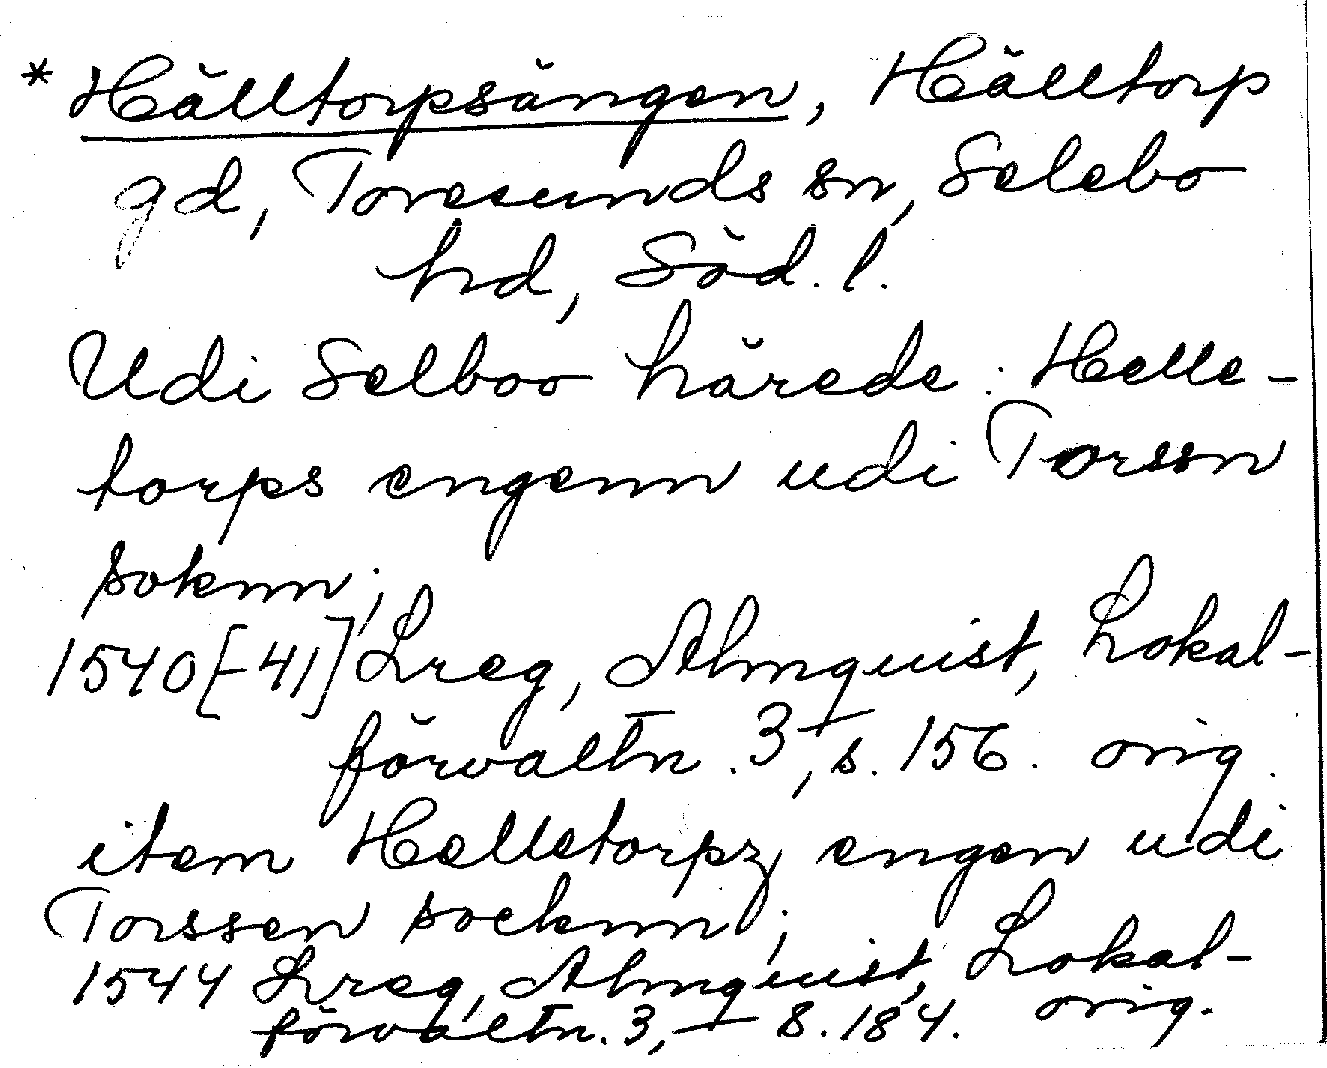 * Hälltorpsängen, Hälltorp
gd, Toresunds sn, Selebo
hd, Söd. l.
Udi Selboo härede: Helle-
torps engenn udi Torssn
soknn;
1540[-41] Lreg, Almquist, Lokal-
förvaltn. 3, s. 156. orig.
item Helletorpz engen udi
Torssen socknn;
1544 Lreg, Almquist, Lokal-
förvaltn. 3, s. 184. orig.